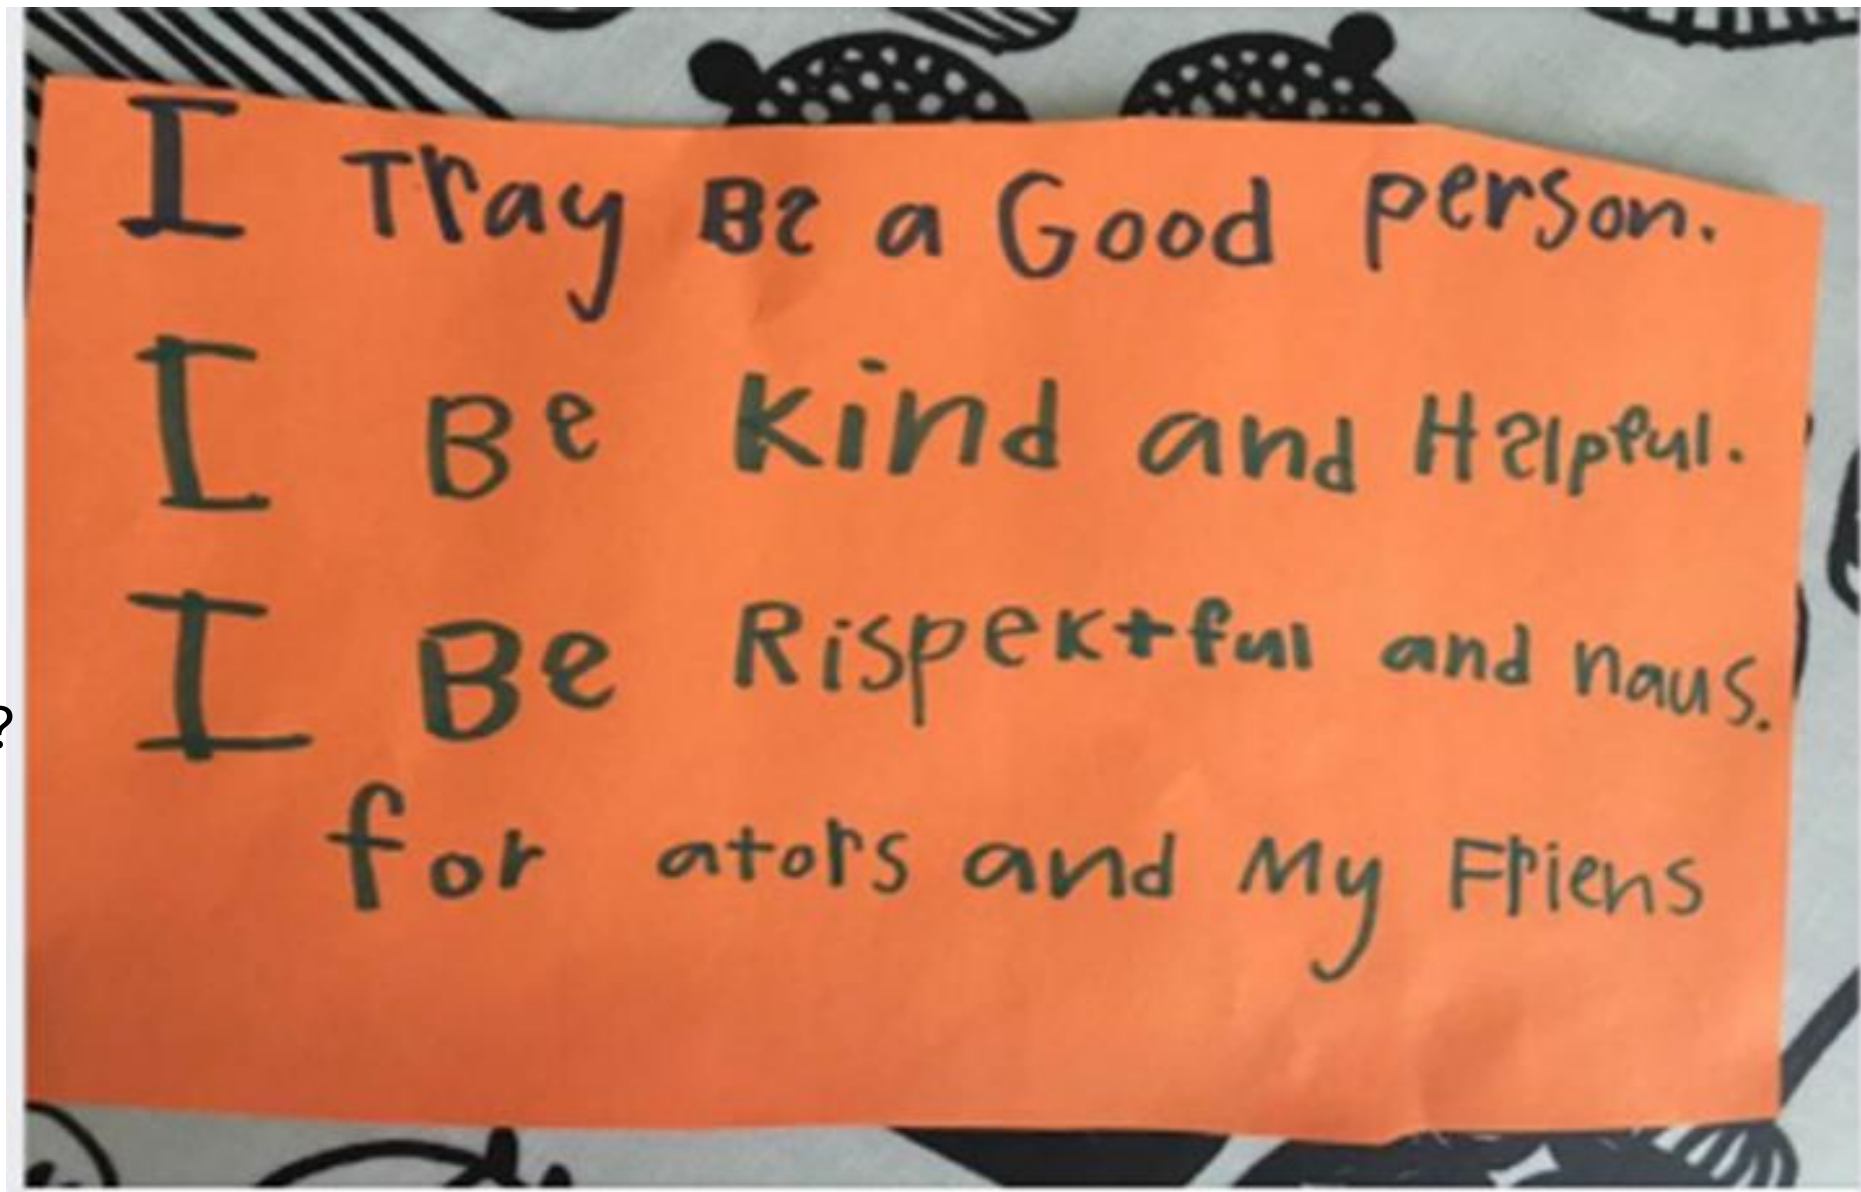 I Tray Be a Good person.
I Be Kind and Helpful.
I Be Rispektful and naus.
for ators and My Friens
?